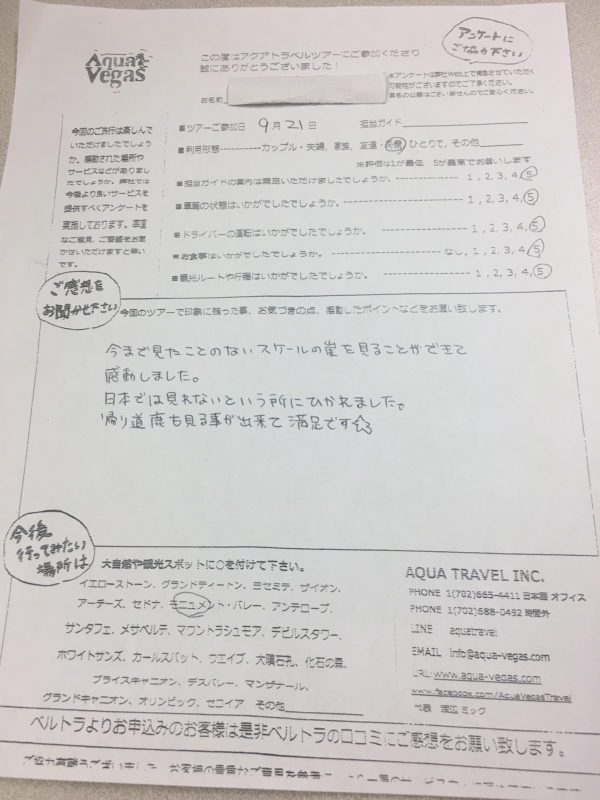 Aqua Vegas
この度はアクアトラベルツアーにご参加くださり
誠にありがとうございました！
アンケートに
ご協力下さい
お名前
今回のご旅行は楽しんで
いただけましたでしょう
か。感動された場所や
サービスなどがありまし
たでしょうか。弊社では
今後より良いサービスを
提供すべくアンケートを
実施しております。率直
なご意見、ご要望をお聞
かせいただけますと幸い
です。
■ツアーご参加日 9月21日 担当ガイド
■利用形態-----------カップル・夫婦, 家族, 友達・同僚 ひとりで, その他
※評価は1が最低 5が最高でお願いします
■担当ガイドの案内は満足いただけましたでしょうか。 -------------- 1, 2, 3, 4, 5
■車輌の状態はいかがでしたでしょうか。 -------------- 1, 2, 3, 4, 5
■ドライバーの運転はいかがでしたでしょうか。 -------------- 1, 2, 3, 4, 5
■お食事はいかがでしたでしょうか。 -------------- なし, 1, 2, 3, 4, 5
■観光ルートや行程はいかがでしたでしょうか。 -------------- 1, 2, 3, 4, 5
ご感想を
お聞かせ下さい
今回のツアーで印象に残った事、お気づきの点、感動したポイントなどをお願い致します。
今まで見たことのないスケールの崖を見ることができて
感動しました。
日本では見れないという所にひかれました。
帰り道鹿も見る事が出来て満足です☆
今後
行ってみたい
場所は
大自然や観光スポットに○を付けて下さい。
イエローストーン、グランドティートン、ヨセミテ、ザイオン、
アーチーズ、セドナ、モニュメント・バレー、アンテロープ、
サンタフェ、メサベルデ、マウントラシュモア、デビルスタワー、
ホワイトサンズ、カールスバット、ウエイブ、大隕石孔、化石の森、
ブライスキャニオン、デスバレー、マンザナール、
グランドキャニオン、オリンピック、セコイア その他
AQUA TRAVEL INC.
PHONE 1(702)665-4411 日本語 オフィス
PHONE 1(702)588-0492 時間外
LINE aquatravel
EMAIL info@aqua-vegas.com
URL: www.aqua-vegas.com
www.facebook.com/AquaVegasTravel
代表 ミック
ベルトラよりお申込みのお客様は是非ベルトラの口コミにご感想をお願い致します。